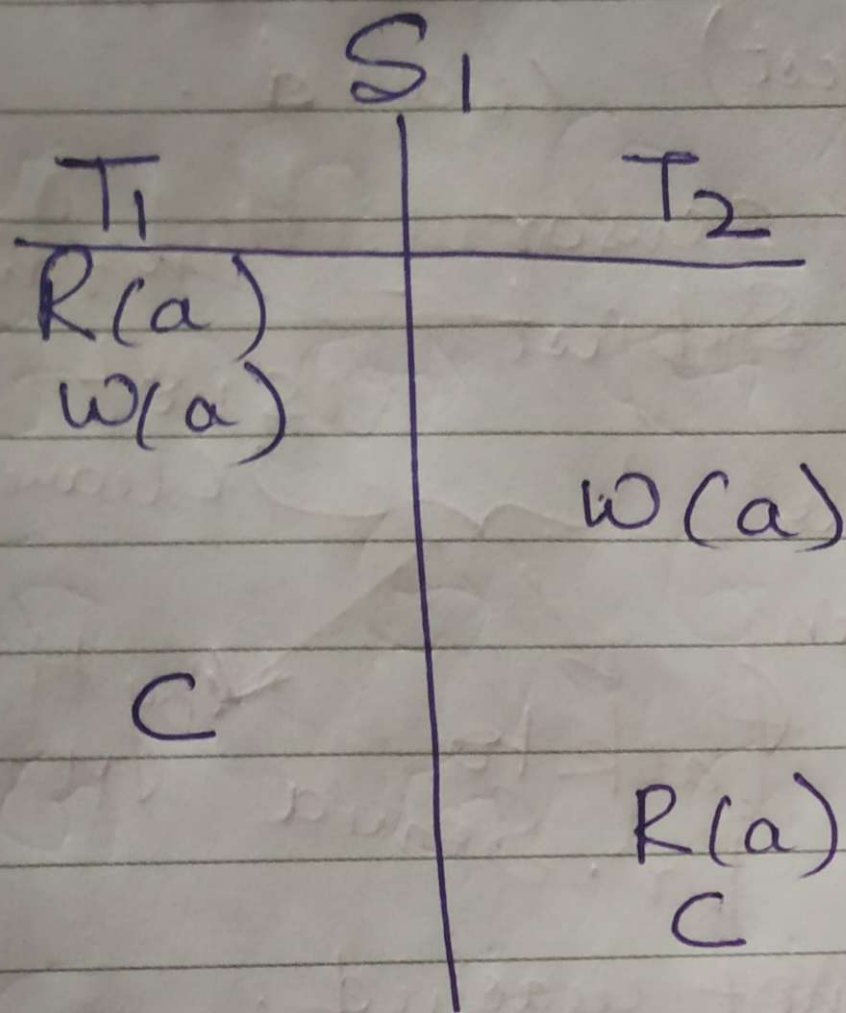 S1
T1 T2
R(a)
W(a)
W(a)
C
R(a)
C